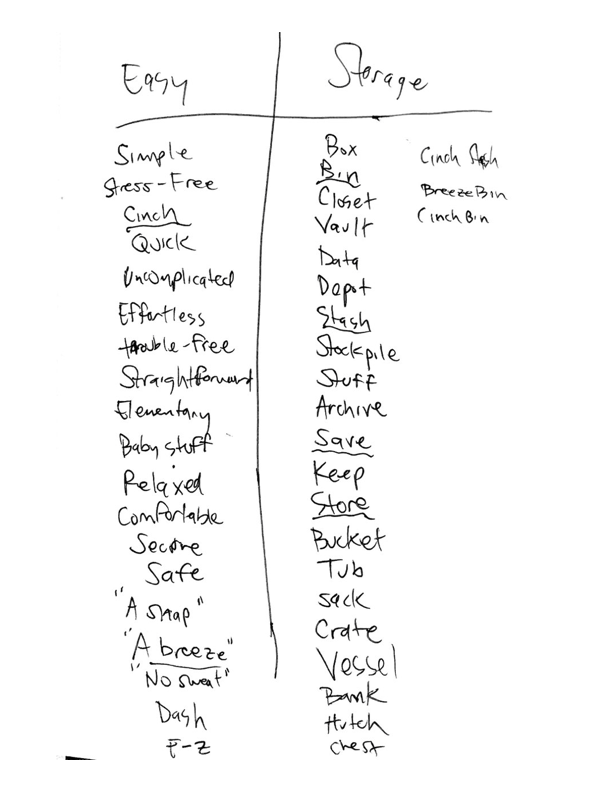 Easy
Simple
Stress-Free
Cinch
Quick
Uncomplicated
Effortless
trouble-free
Straightforward
Elementary
Baby stuff
Relaxed
Comfortable
Secure
Safe
"A snap"
"A breeze"
"No sweat"
Dash
E-Z
Storage
Box
Bin
Closet
Vault
Data
Depot
Stash
Stockpile
Stuff
Archive
Save
Keep
Store
Bucket
Tub
sack
Crate
Vessel
Bank
Hutch
Chest
Cinch Stash
BreezeBin
CinchBin